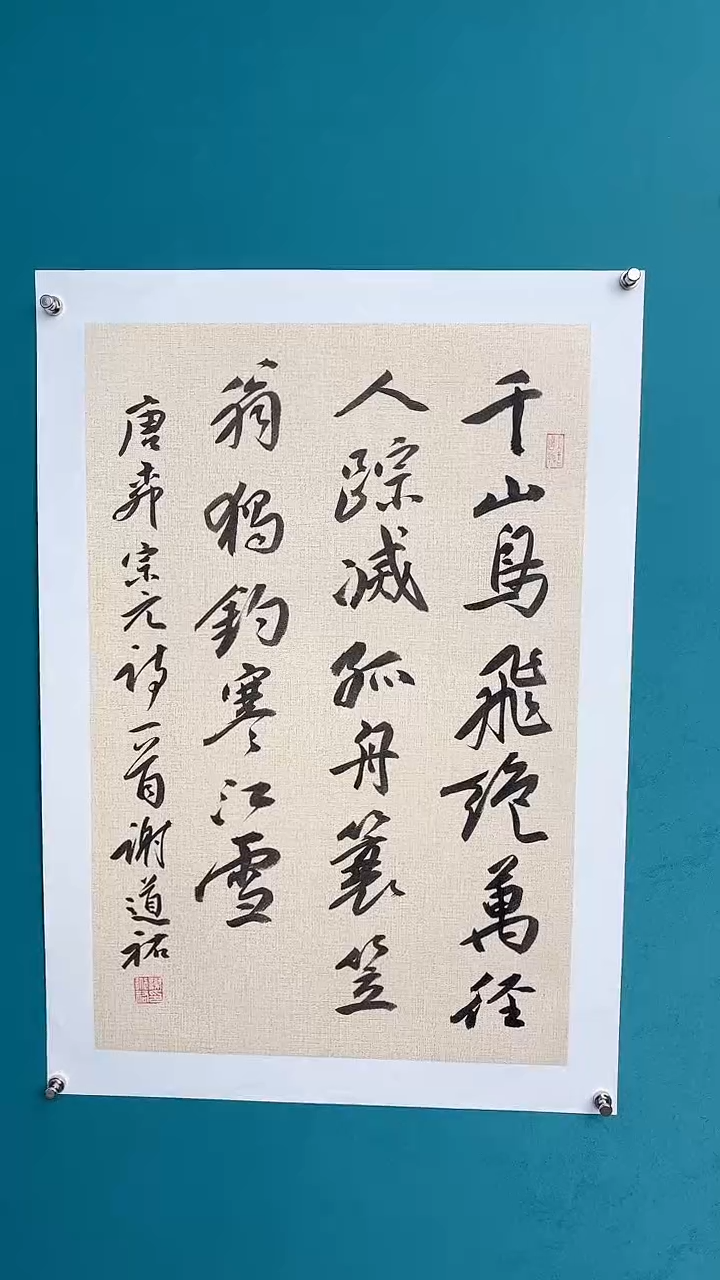 千山鳥飛絶萬径
人踪滅孤舟蓑笠
翁獨釣寒江雪
唐柳宗元詩一首謝道祐